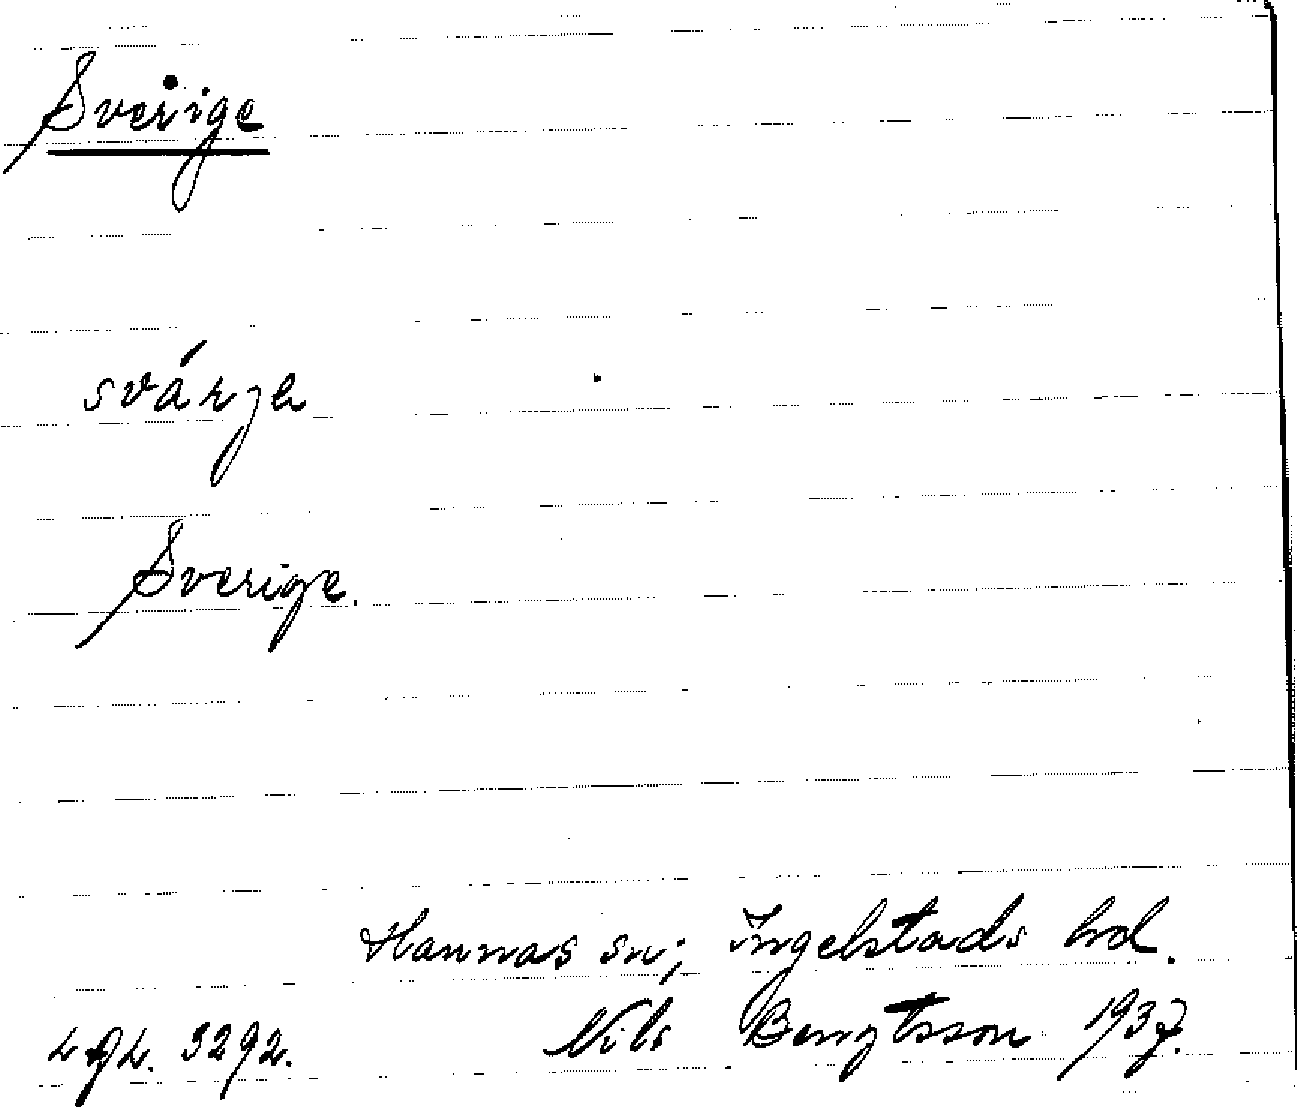 Sverige
svárje
Sverige.
Hannas sn; Ingelstads hd.
Nils Bengtsson 1937.
3292.